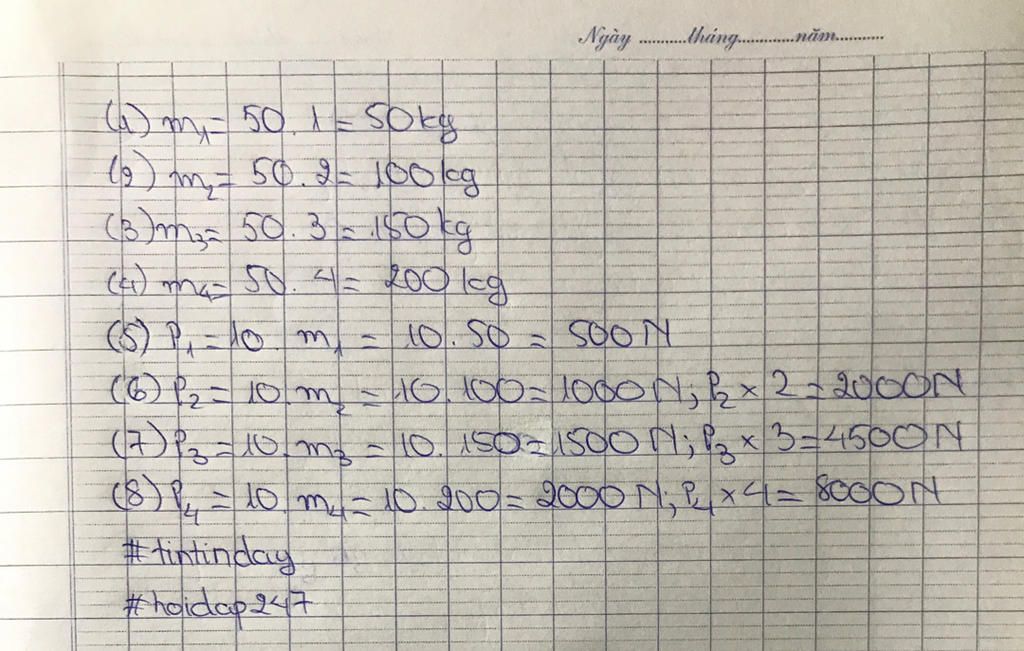 Ngày ..........tháng............năm...........
(1) m₁= 50 . 1 = 50kg
(2) m₂= 50 . 2= 100kg
(3) m₃= 50 . 3 = 150kg
(4) m₄= 50 . 4= 200 kg
(5) P₁ = 10. m₁ = 10 . 50 = 500N
(6) P₂ = 10 . m₂ = 10 . 100 = 1000 N; P₂ × 2 = 2000N
(7) P₃ = 10 . m₃ = 10 . 150 = 1500 N; P₃ × 3 = 4500N
(8) P₄ = 10 . m₄ = 10 . 200 = 2000 N; P₄ × 4 = 8000N
#tintinday
#hoidap247